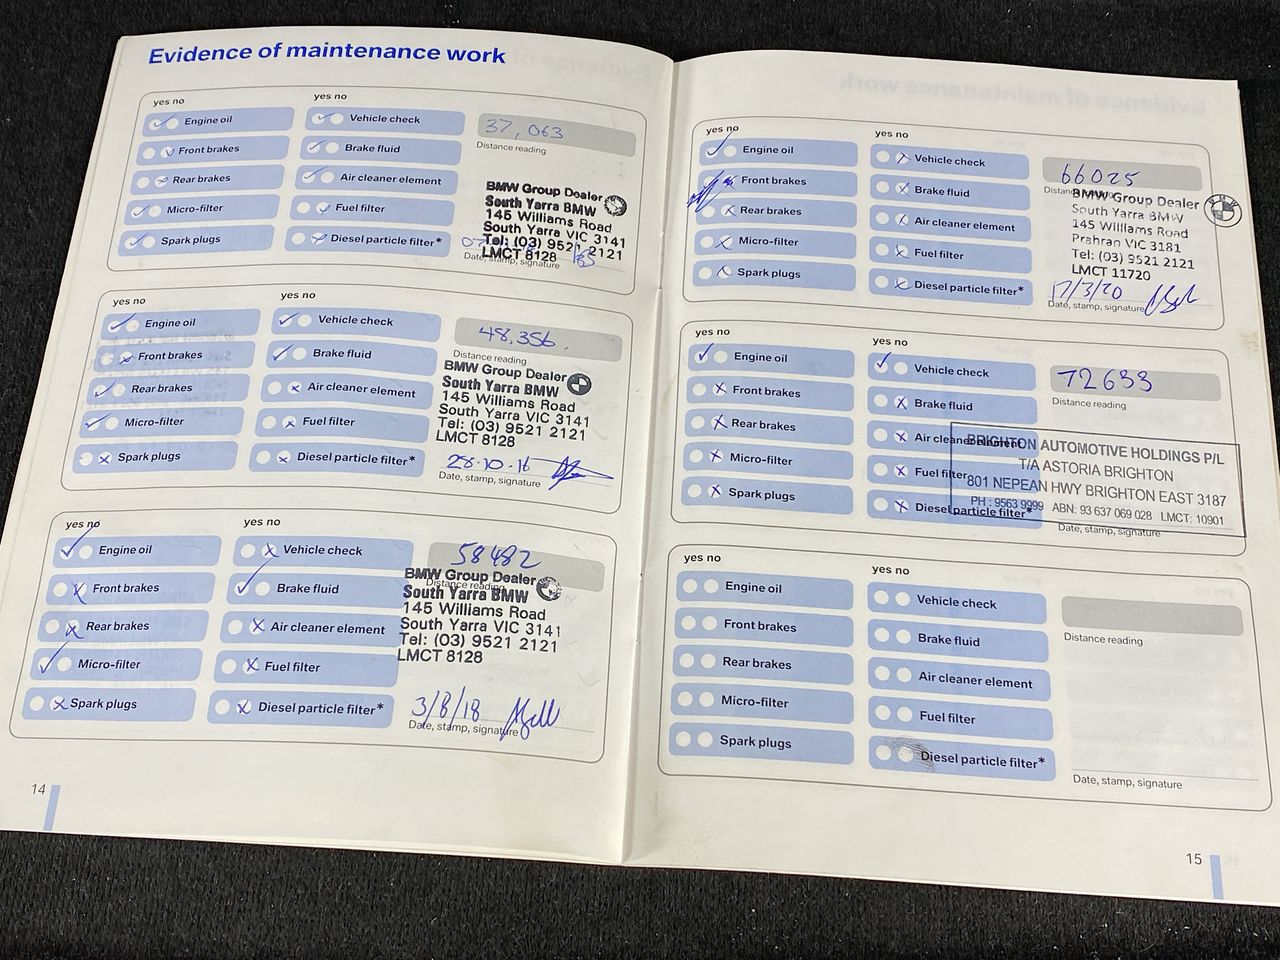 Evidence of maintenance work
yes no
yes no
Engine oil
Vehicle check
37,063
Distance reading
Front brakes
Brake fluid
Rear brakes
Air cleaner element
Micro-filter
Fuel filter
Spark plugs
Diesel particle filter*
BMW Group Dealer
South Yarra BMW
145 Williams Road
South Yarra VIC 3141
Tel: (03) 9521 2121
LMCT 8128
Date, stamp, signature
yes no
yes no
Engine oil
Vehicle check
48,356.
Distance reading
Front brakes
Brake fluid
Rear brakes
Air cleaner element
Micro-filter
Fuel filter
Spark plugs
Diesel particle filter*
BMW Group Dealer
South Yarra BMW
145 Williams Road
South Yarra VIC 3141
Tel: (03) 9521 2121
LMCT 8128
28.10.16
Date, stamp, signature
yes no
yes no
Engine oil
Vehicle check
58482
Distance reading
Front brakes
Brake fluid
Rear brakes
Air cleaner element
Micro-filter
Fuel filter
Spark plugs
Diesel particle filter*
BMW Group Dealer
South Yarra BMW
145 Williams Road
South Yarra VIC 3141
Tel: (03) 9521 2121
LMCT 8128
3/8/18
Date, stamp, signature
14
yes no
yes no
Engine oil
Vehicle check
66025
Front brakes
Brake fluid
Rear brakes
Air cleaner element
Micro-filter
Fuel filter
Spark plugs
Diesel particle filter*
BMW Group Dealer
South Yarra BMW
145 Williams Road
Prahran VIC 3181
Tel: (03) 9521 2121
LMCT 11720
BMW
17/3/20
Date, stamp, signature
yes no
yes no
Engine oil
Vehicle check
72633
Distance reading
Front brakes
Brake fluid
Rear brakes
Air cleaner element
Micro-filter
Fuel filter
Spark plugs
Diesel particle filter*
BRIGHTON AUTOMOTIVE HOLDINGS P/L
T/A ASTORIA BRIGHTON
801 NEPEAN HWY BRIGHTON EAST 3187
PH : 9563 9999 ABN: 93 637 069 028 LMCT: 10901
Date, stamp, signature
yes no
yes no
Engine oil
Vehicle check
Distance reading
Front brakes
Brake fluid
Rear brakes
Air cleaner element
Micro-filter
Fuel filter
Spark plugs
Diesel particle filter*
Date, stamp, signature
15